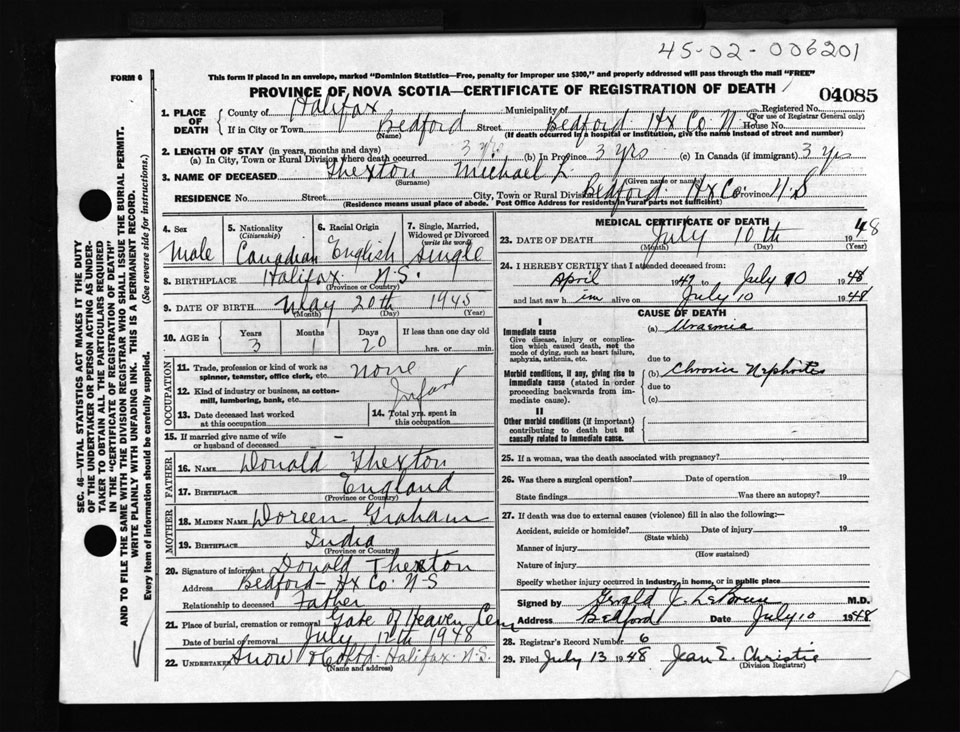 45-02-006201
FORM 6
This form if placed in an envelope, marked "Dominion Statistics—Free, penalty for improper use $300," and properly addressed will pass through the mail "FREE"
PROVINCE OF NOVA SCOTIA—CERTIFICATE OF REGISTRATION OF DEATH
04085
1. PLACE OF DEATH
County of Halifax Municipality of Registered No.
(For use of Registrar General only)
If in City or Town Bedford Street Bedford Hx Co N.S House No.
(Name) (If death occurred in a hospital or institution, give the name instead of street and number)
2. LENGTH OF STAY (in years, months and days)
(a) In City, Town or Rural Division where death occurred 3 yrs (b) In Province 3 yrs (c) In Canada (if immigrant) 3 yrs
3. NAME OF DECEASED Thexton Michael L.
(Surname) (Given name or names)
RESIDENCE No. Street City, Town or Rural Division Bedford Hx Co. Province N.S
(Residence means usual place of abode. Post Office Address for residents in rural parts not sufficient)
4. Sex Male
5. Nationality (Citizenship) Canadian
6. Racial Origin English
7. Single, Married, Widowed or Divorced (write the word) Single
8. BIRTHPLACE Halifax N.S.
(Province or Country)
9. DATE OF BIRTH May 20th 1945
(Month) (Day) (Year)
10. AGE in Years 3 Months 1 Days 20 If less than one day old hrs. or min.
OCCUPATION
11. Trade, profession or kind of work as spinner, teamster, office clerk, etc. none
12. Kind of industry or business, as cotton-mill, lumbering, bank, etc. Infant
13. Date deceased last worked at this occupation
14. Total yrs. spent in this occupation
15. If married give name of wife or husband of deceased –
FATHER
16. NAME Donald Thexton
17. BIRTHPLACE England
(Province or Country)
MOTHER
18. MAIDEN NAME Doreen Graham
19. BIRTHPLACE India
(Province or Country)
20. Signature of informant Donald Thexton
Address Bedford – Hx Co. N-S
Relationship to deceased Father
21. Place of burial, cremation or removal Gate Of Heaven Cem
Date of burial or removal July 12th 1948
22. UNDERTAKER Snow & Co Ltd. Halifax. N.S.
(Name and address)
MEDICAL CERTIFICATE OF DEATH
23. DATE OF DEATH July 10th 1948
(Month) (Day)
24. I HEREBY CERTIFY that I attended deceased from:
April 1947 to July 10 1948
and last saw him alive on July 10 1948
CAUSE OF DEATH
I
Immediate cause
Give disease, injury or complication which caused death, not the mode of dying, such as heart failure, asphyxia, asthenia, etc.
(a) Uraemia
due to
Morbid conditions, if any, giving rise to immediate cause (stated in order proceeding backwards from immediate cause).
(b) Chronic Nephritis
due to
(c)
II
Other morbid conditions (if important) contributing to death but not causally related to immediate cause.
25. If a woman, was the death associated with pregnancy?
26. Was there a surgical operation? Date of operation 19
State findings Was there an autopsy?
27. If death was due to external causes (violence) fill in also the following:—
Accident, suicide or homicide? Date of injury 19
(State which)
Manner of injury
(How sustained)
Nature of injury
Specify whether injury occurred in industry, in home, or in public place
Signed by Gerald J. LeBrun M.D.
Address Bedford Date July 10 1948
28. Registrar's Record Number 6
29. Filed July 13 1948 Jean E. Christie
(Division Registrar)
SEC. 46—VITAL STATISTICS ACT MAKES IT THE DUTY
OF THE UNDERTAKER OR PERSON ACTING AS UNDER-
TAKER TO OBTAIN ALL THE PARTICULARS REQUIRED
IN THE "CERTIFICATE OF REGISTRATION OF DEATH"
AND TO FILE THE SAME WITH THE DIVISION REGISTRAR WHO SHALL ISSUE THE BURIAL PERMIT.
WRITE PLAINLY WITH UNFADING INK. THIS IS A PERMANENT RECORD.
Every item of information should be carefully supplied. (See reverse side for instructions.)